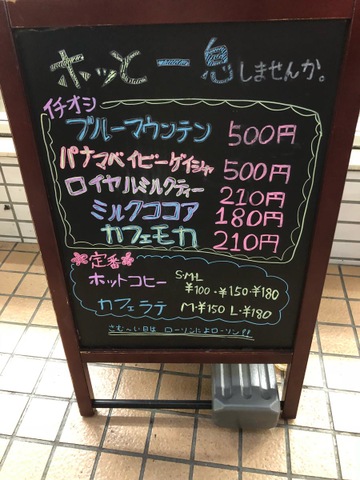 ホッと一息しませんか。
イチオシ
ブルーマウンテン 500円
パナマベイビーゲイシャ 500円
ロイヤルミルクティー 210円
ミルクココア 180円
カフェモカ 210円
定番
ホットコヒー S・M・L ¥100・¥150・¥180
カフェラテ M・¥150 L・¥180
さむ~い日は ローソンによローソン!!